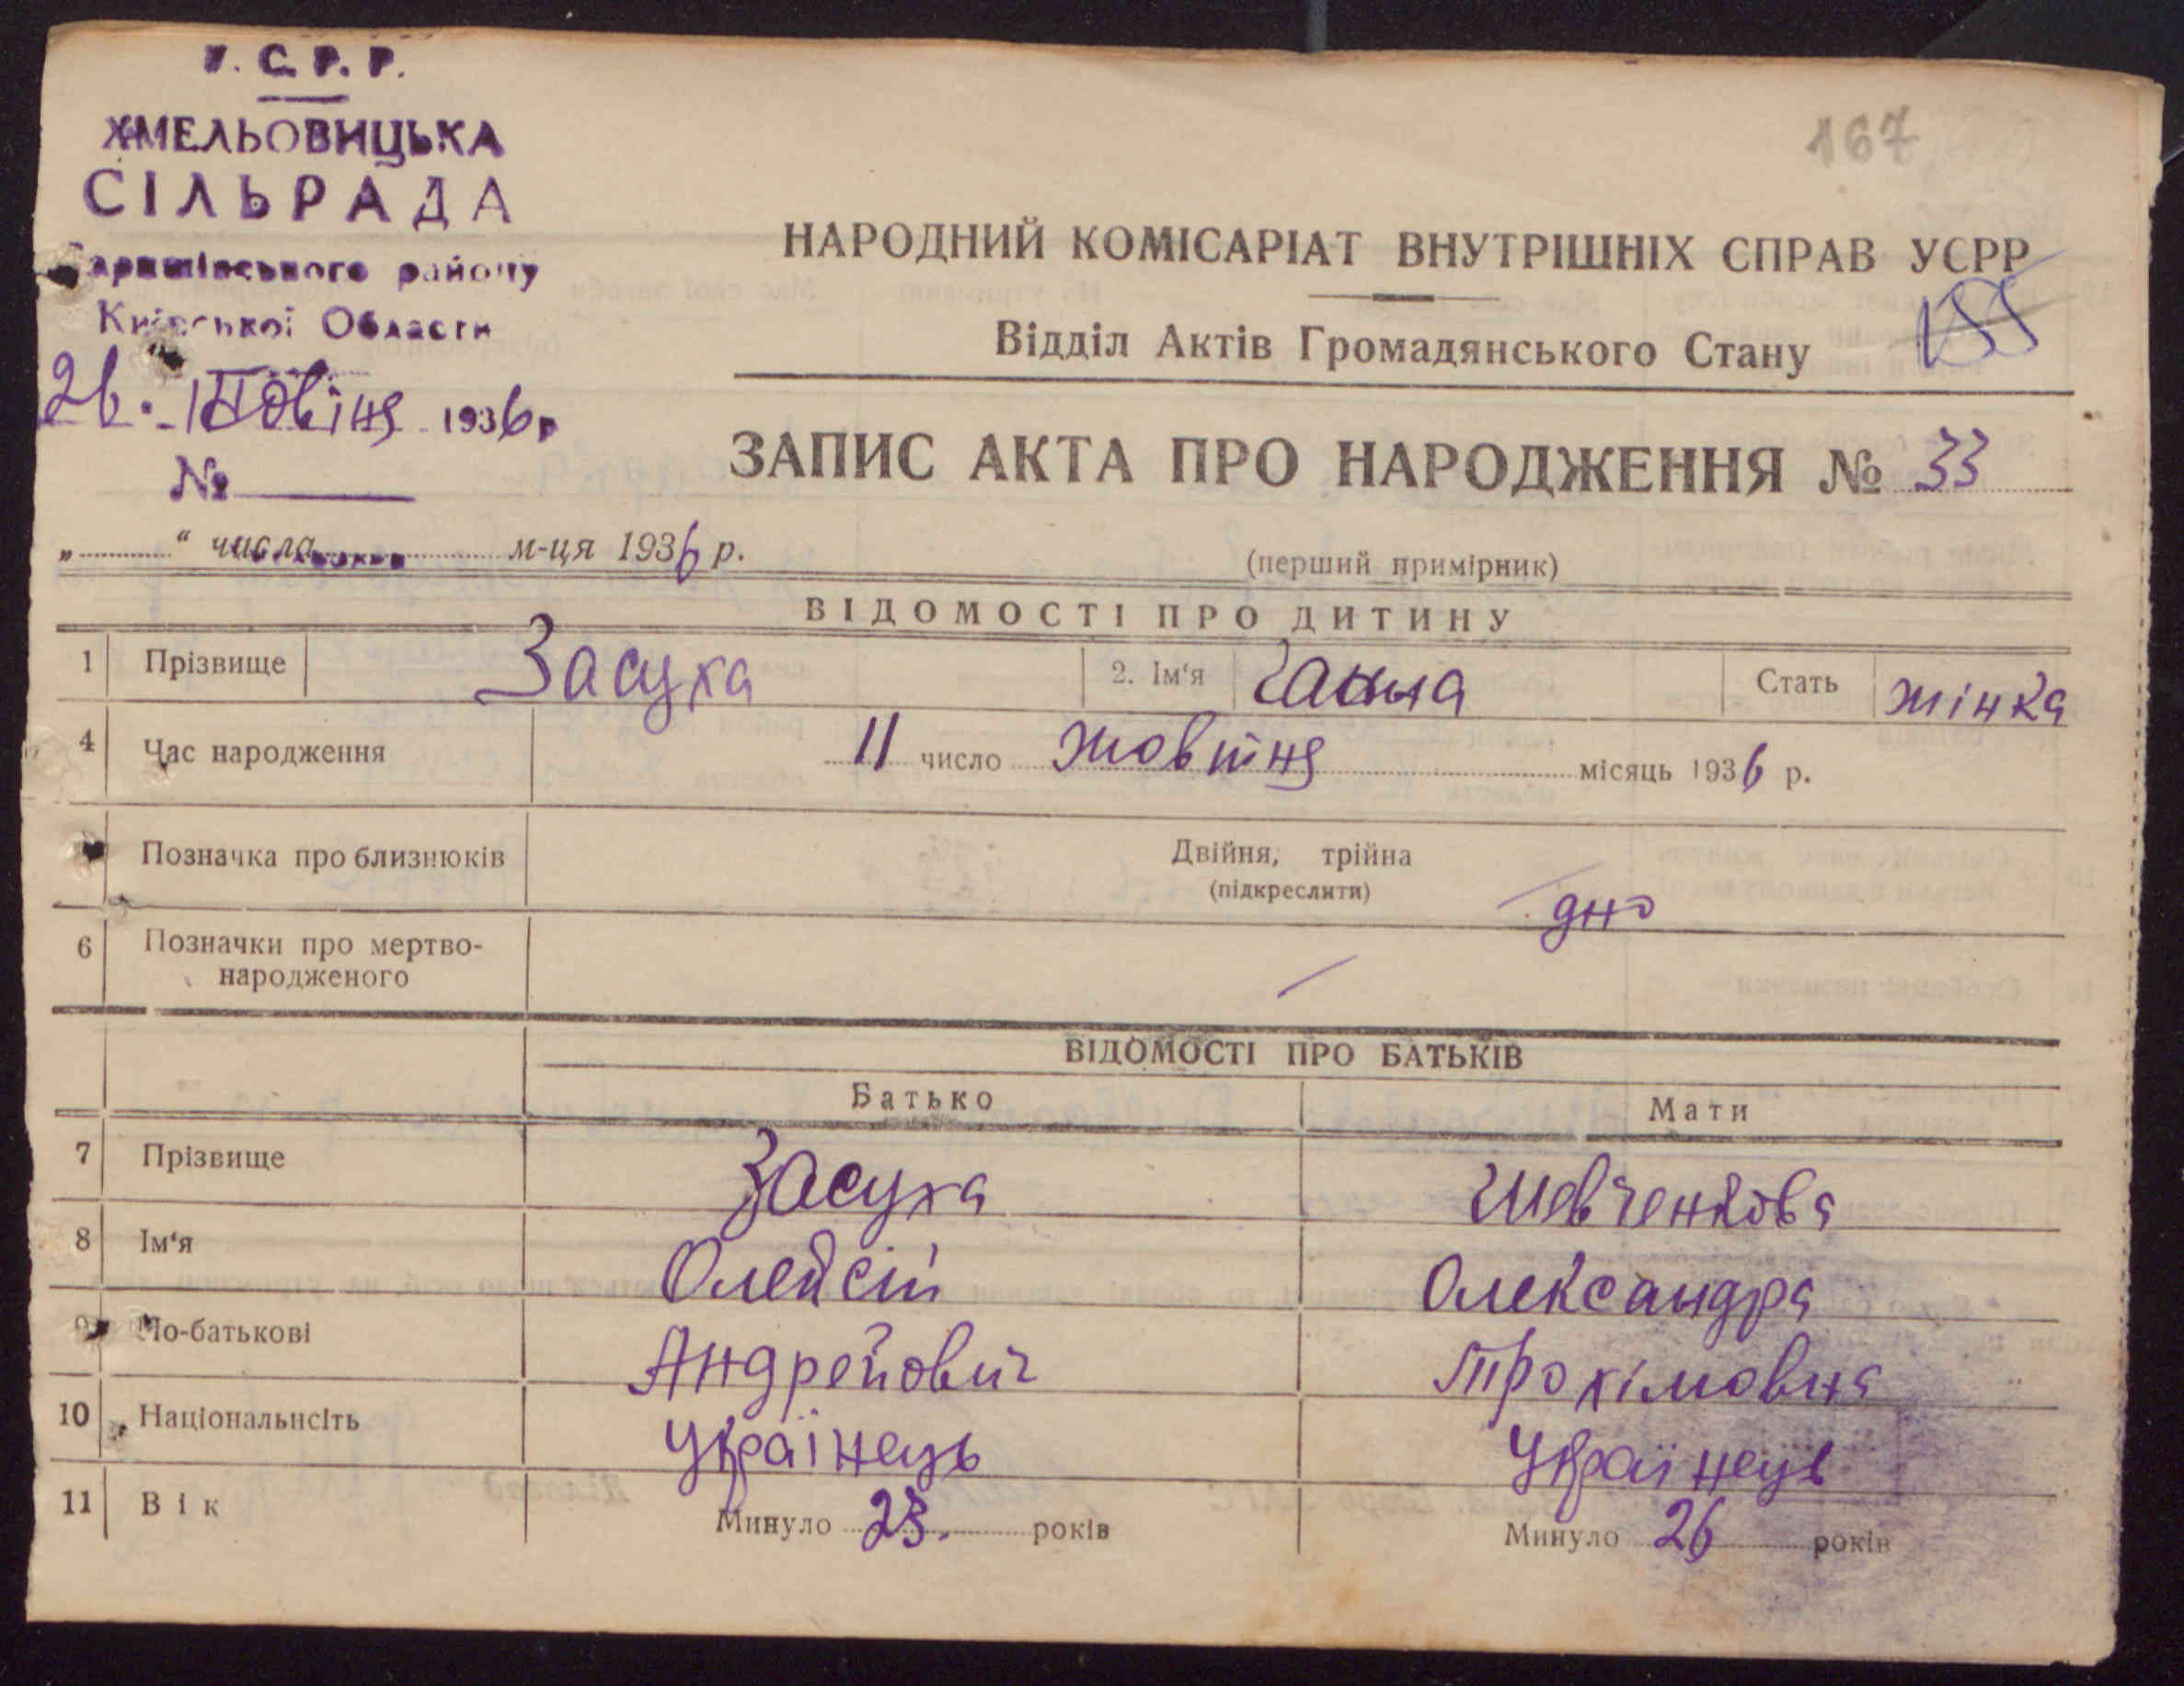 У.С.Р.Р.
ХМЕЛЬОВИЦЬКА
СІЛЬРАДА
району
Київської Области
26. 1936р
№
167
НАРОДНИЙ КОМІСАРІАТ ВНУТРІШНІХ СПРАВ УСРР
Відділ Актів Громадянського Стану
155
ЗАПИС АКТА ПРО НАРОДЖЕННЯ № 33
„ “ числа м-ця 1936 р.
(перший примірник)
ВІДОМОСТІ ПРО ДИТИНУ
1 Прізвище Засуха 2. Ім'я Ганна Стать жінка
4 Час народження 11 число жовтня місяць 1936 р.
Позначка про близнюків Двійня, трійна
(підкреслити)
6 Позначки про мертво-
народженого
ВІДОМОСТІ ПРО БАТЬКІВ
Батько Мати
7 Прізвище Засуха Шевченкова
8 Ім'я Олексій Олександра
9 По-батькові Андрейович Трохімовна
10 Національнсіть Українець Українець
11 Вік Минуло 23. років Минуло 26 років